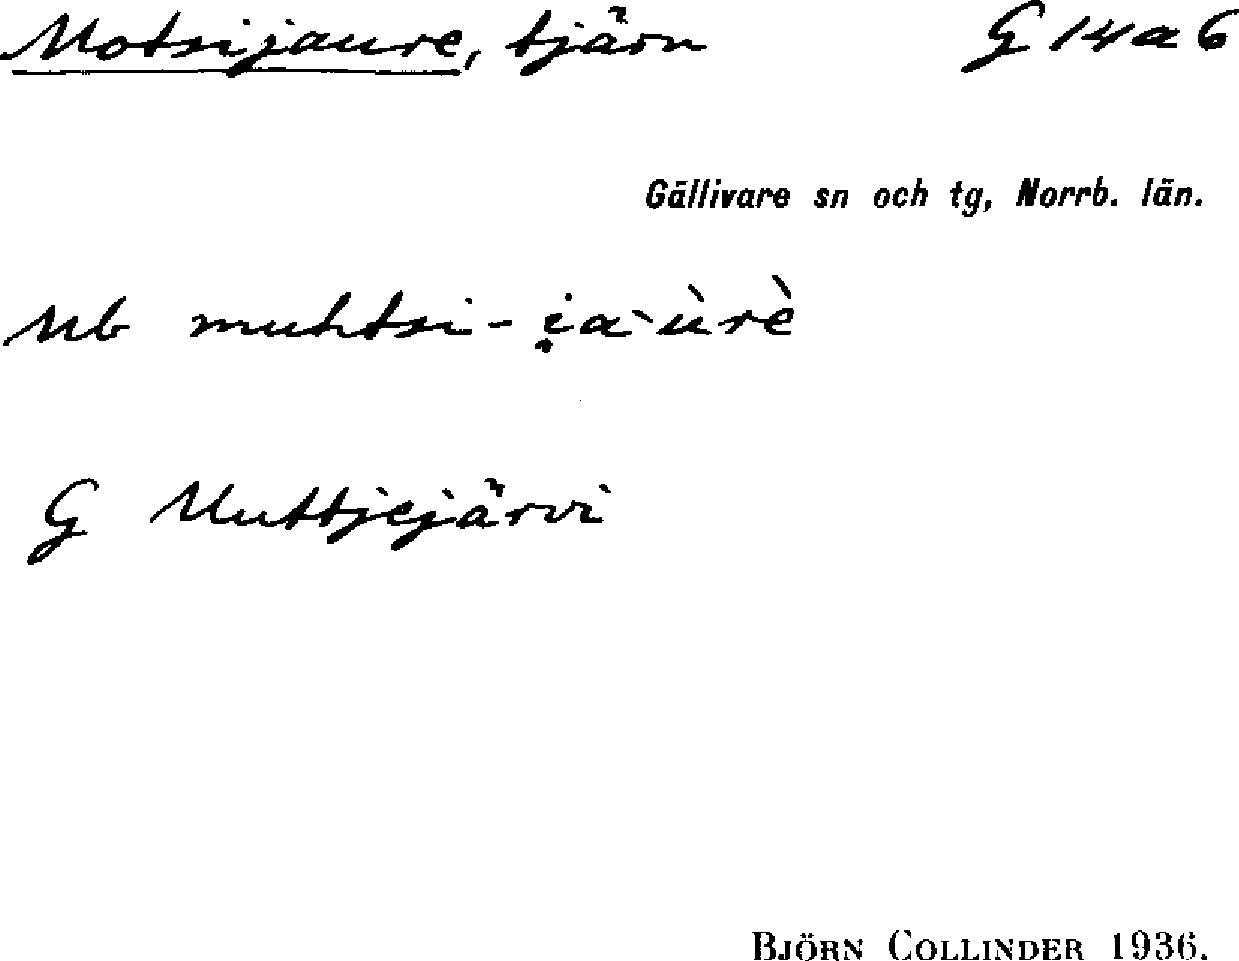 Motsijaure, tjärn G 14 a 6
Gällivare sn och tg, Norrb. län.
Nb muhtsi-i̭a`ùrè
G Muttjejärvi
BJÖRN COLLINDER 1936.